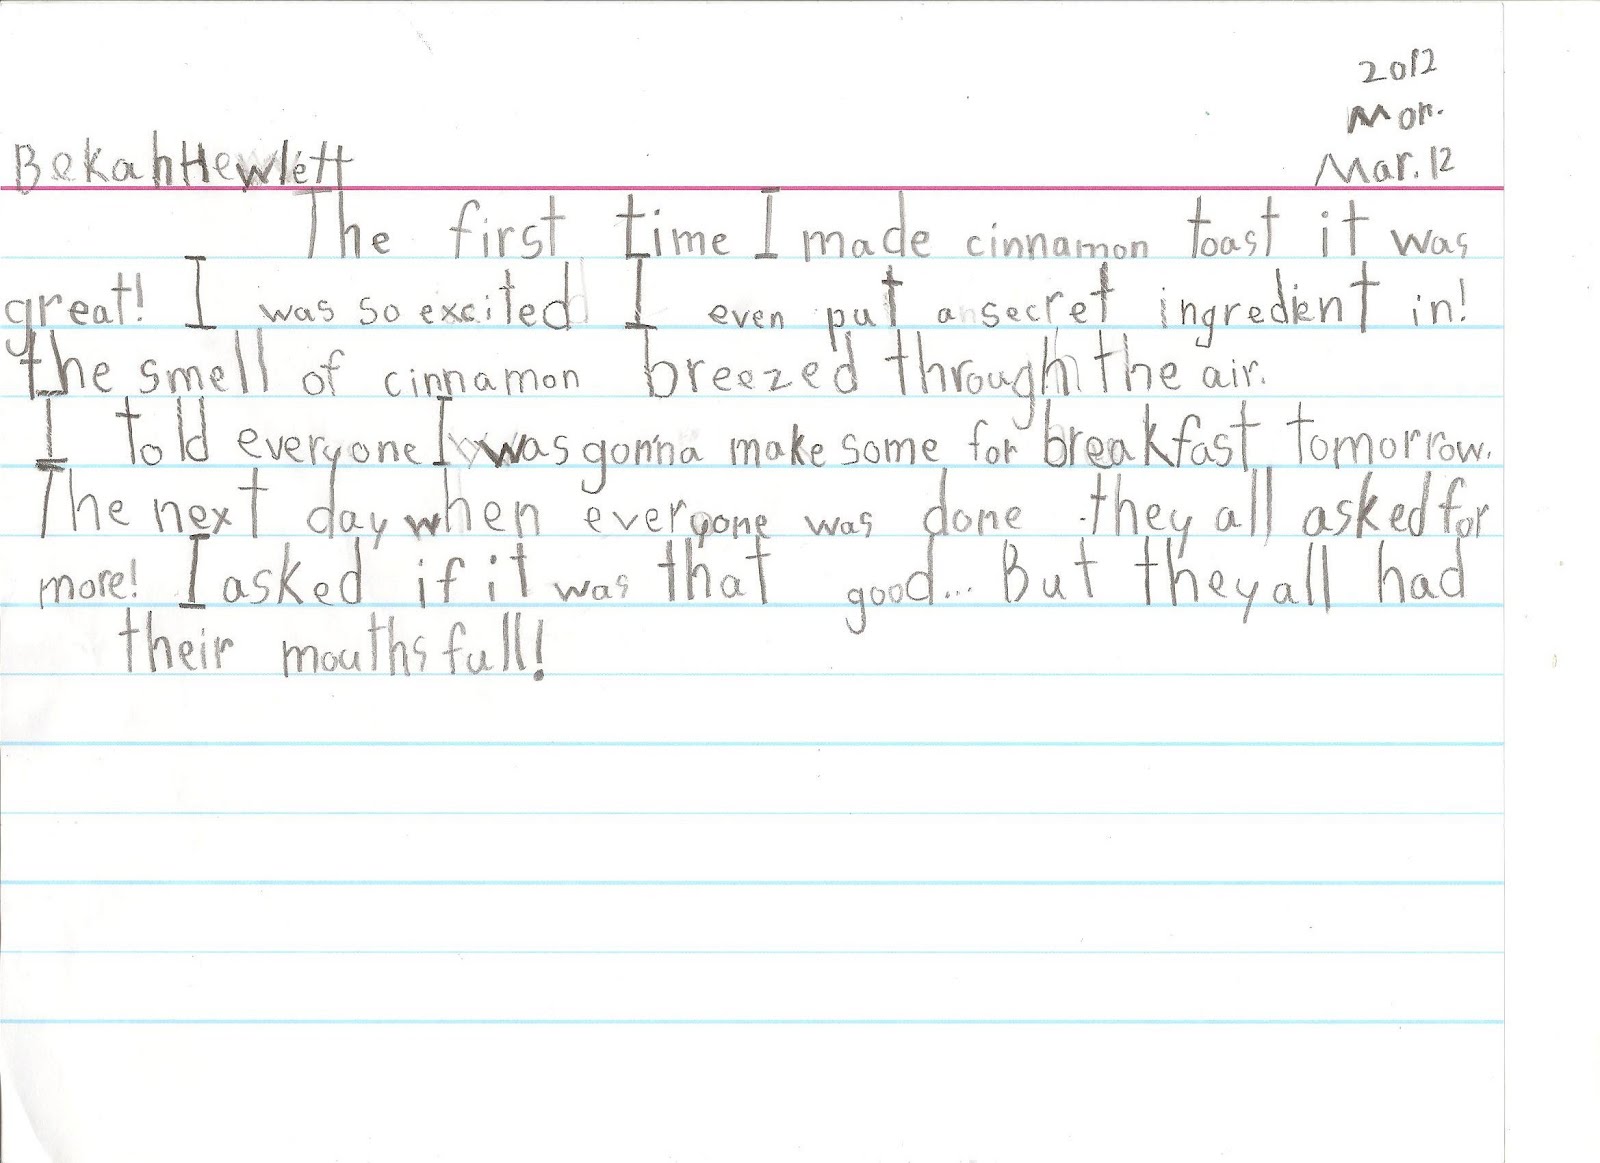 2012
Mon.
Bekah Hewlett Mar. 12
The first time I made cinnamon toast it was
great! I was so excited I even put a secret ingredient in!
the smell of cinnamon breezed through the air.
I told everyone I was gonna make some for breakfast tomorrow.
The next day when everyone was done they all asked for
more! I asked if it was that good... But they all had
their mouths full!